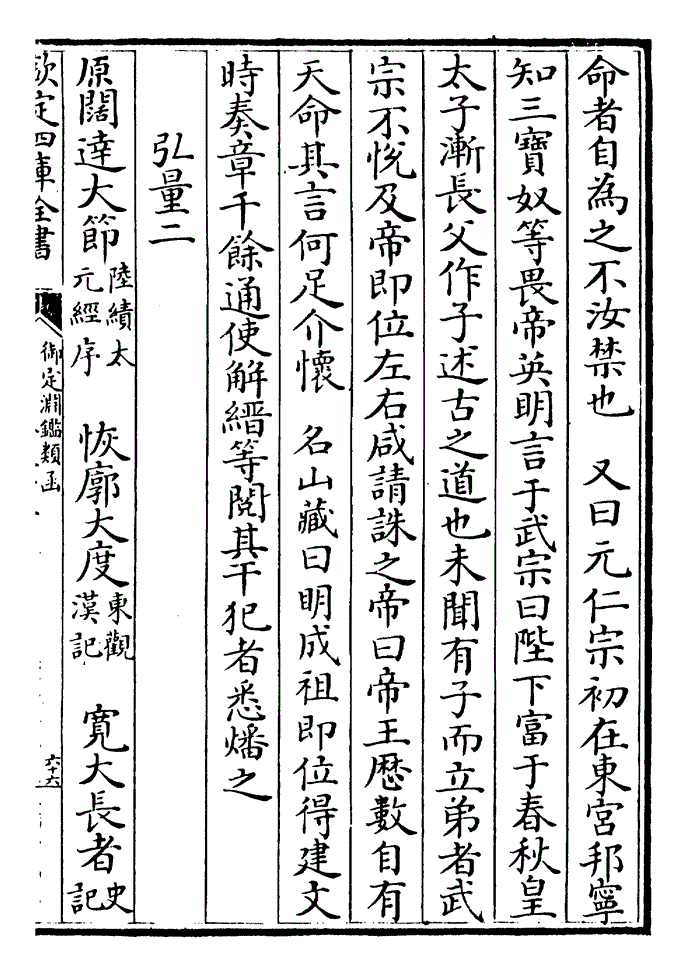 命者自為之不汝禁也　又曰元仁宗初在東宮邦寧
知三寶奴等畏帝英明言于武宗曰陛下富于春秋皇
太子漸長父作子述古之道也未聞有子而立弟者武
宗不悅及帝即位左右咸請誅之帝曰帝王歴數自有
天命其言何足介懷　名山藏曰明成祖即位得建文
時奏章千餘通使解縉等閱其干犯者悉燔之
弘量二
原闊達大節陸績太元經序　恢廓大度東觀漢記　寛大長者史記
欽定四庫全書
御定淵鑑類函
六十六